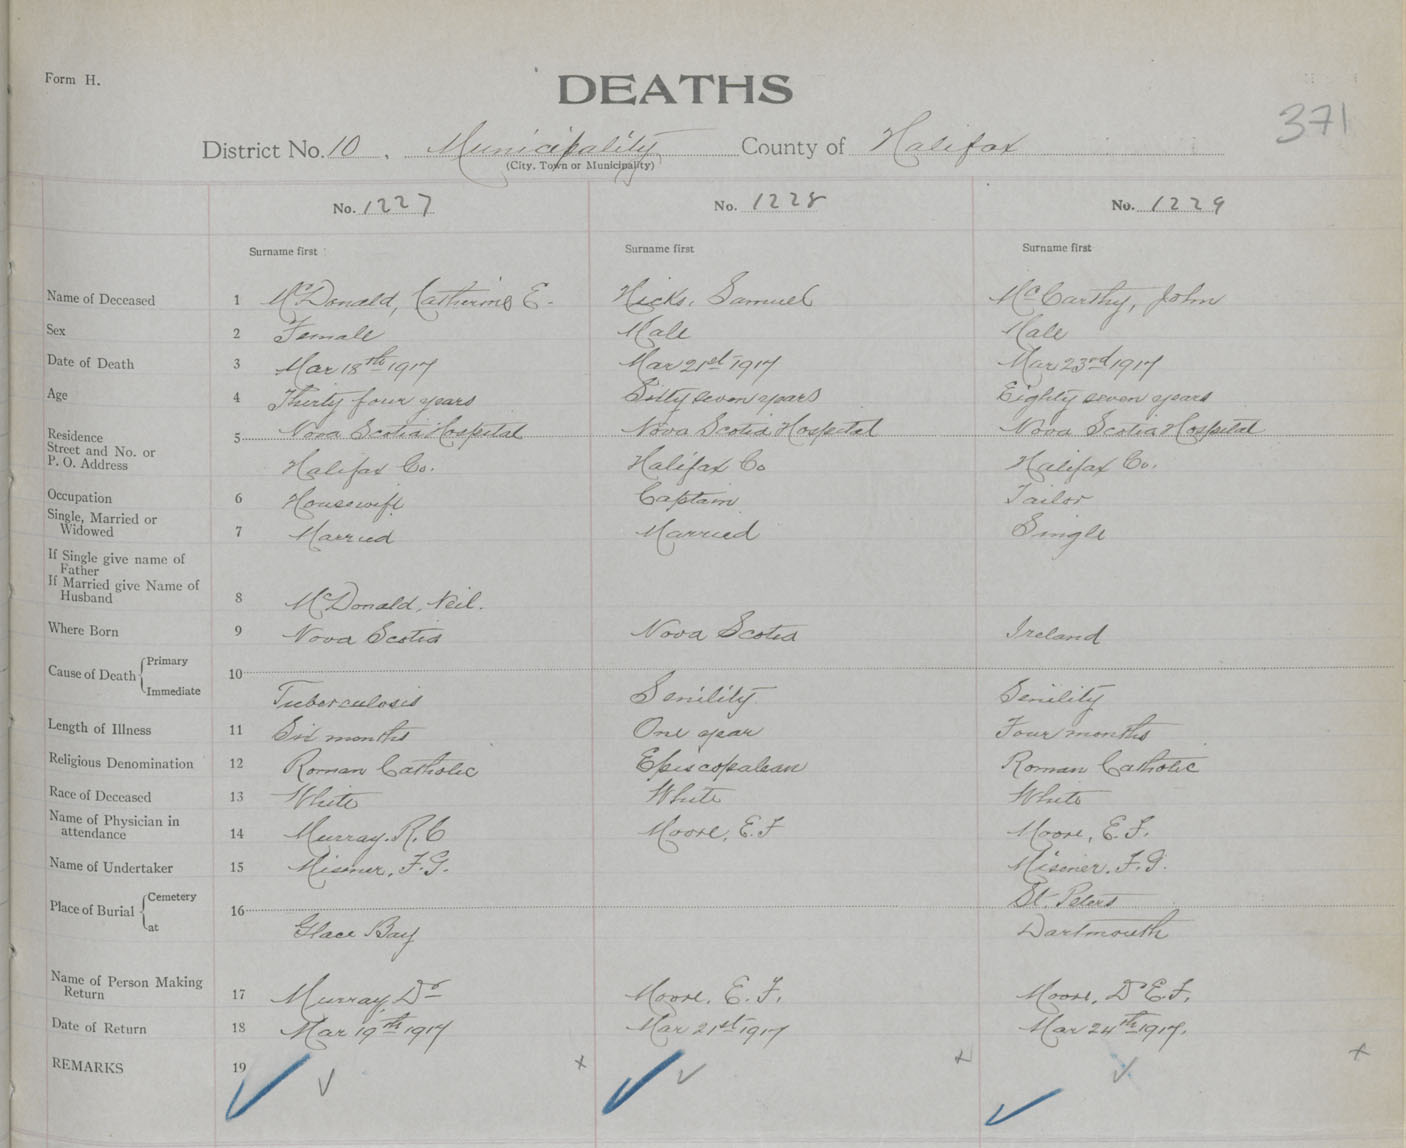 Form H.
DEATHS
371
District No. 10. Municipality County of Halifax
(City, Town or Municipality)
No. 1227 No. 1228 No. 1229
Surname first Surname first Surname first
Name of Deceased 1 McDonald, Catherine E. Hicks, Samuel McCarthy, John
Sex 2 Female Male Male
Date of Death 3 Mar 18th 1917 Mar 21st 1917 Mar 23rd 1917
Age 4 Thirty four years Sixty seven years Eighty seven years
Residence 5 Nova Scotia Hospital Nova Scotia Hospital Nova Scotia Hospital
Street and No. or
P. O. Address Halifax Co. Halifax Co Halifax Co.
Occupation 6 Housewife Captain Tailor
Single, Married or
Widowed 7 Married Married Single
If Single give name of
Father
If Married give Name of
Husband 8 McDonald, Neil.
Where Born 9 Nova Scotia Nova Scotia Ireland
Cause of Death Primary 10
Immediate Tuberculosis Senility Senility
Length of Illness 11 Six months One year Four months
Religious Denomination 12 Roman Catholic Episcopalean Roman Catholic
Race of Deceased 13 White White White
Name of Physician in
attendance 14 Murray. R. C Moore, E. F Moore, E. F.
Name of Undertaker 15 Misener, F. G. Misener, F. G.
Place of Burial Cemetery 16 St. Peters
at Glace Bay Dartmouth
Name of Person Making
Return 17 Murray, Dr Moore, E. F. Moore, Dr E. F.
Date of Return 18 Mar 19th 1917 Mar 21st 1917 Mar 24th 1917.
REMARKS 19 ✓ ✓ x ✓ ✓ x ✓ ✓ x